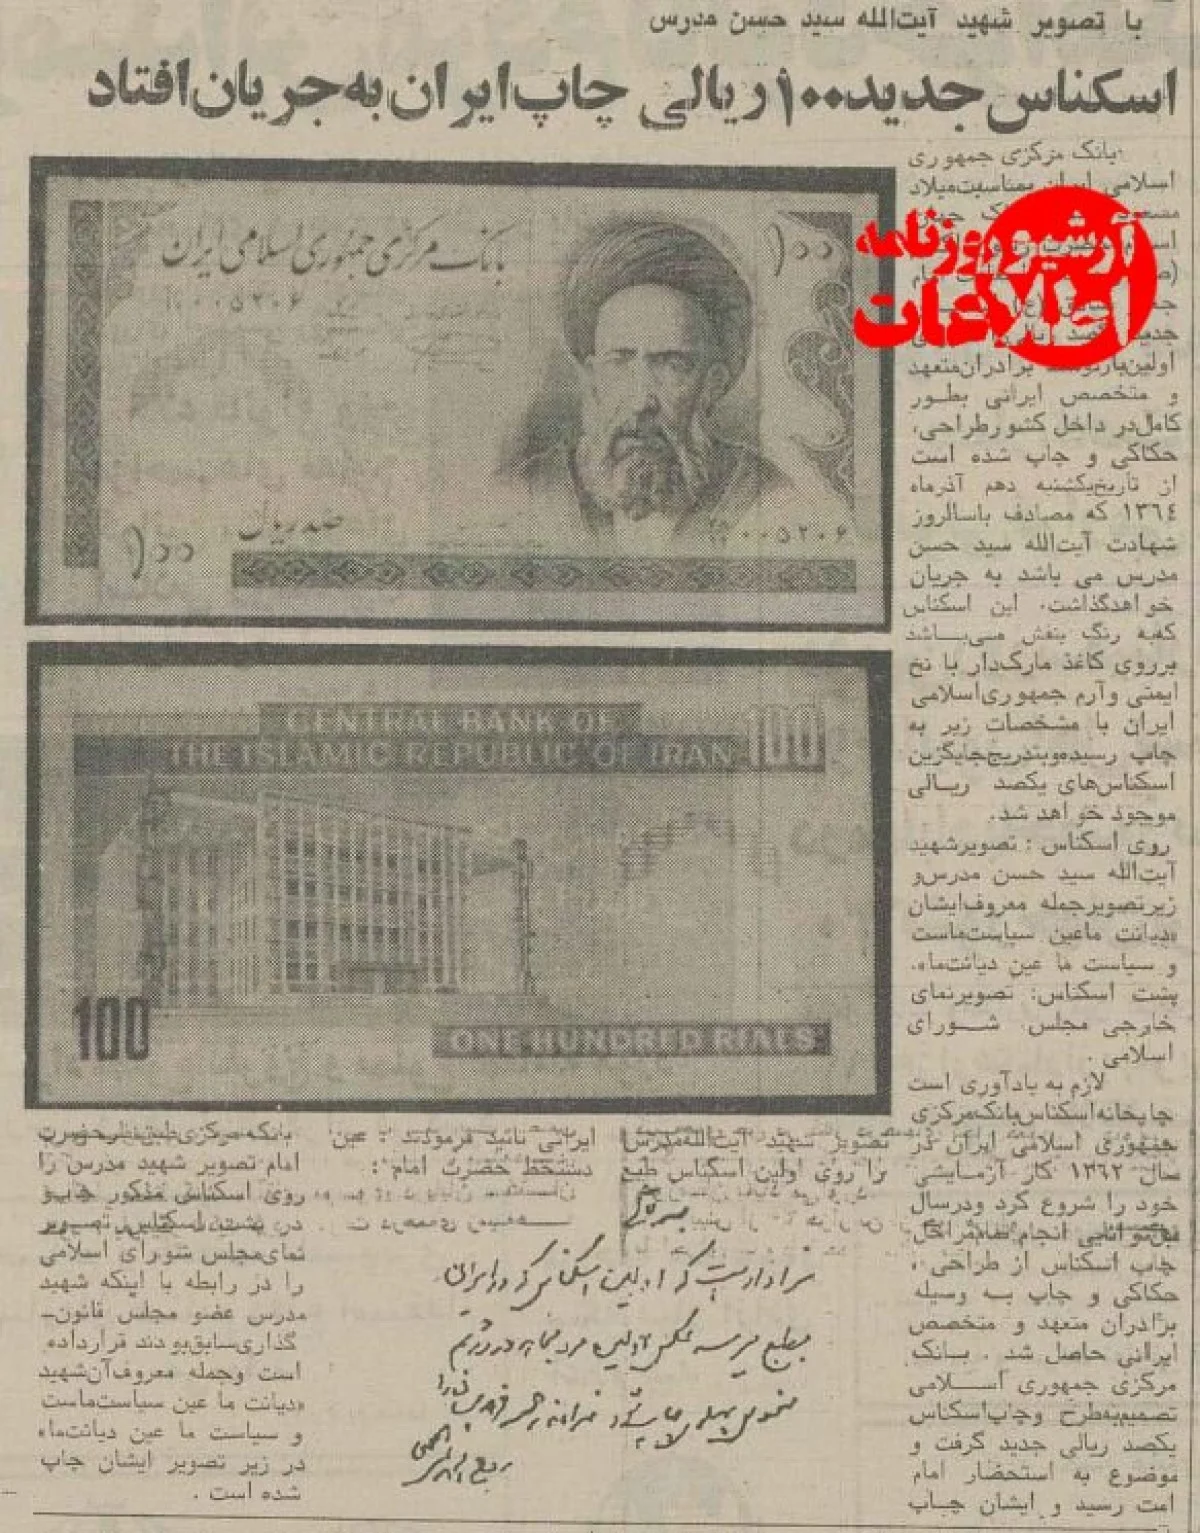 با تصویر شهید آیت‌الله سید حسن مدرس
اسکناس جدید ۱۰۰ ریالی چاپ ایران به جریان افتاد
بانک مرکزی جمهوری
اسلامی ایران بمناسبت میلاد
آرشیو روزنامه
اطلاعات
اولین‌بار برادران متعهد
و متخصص ایرانی بطور
کامل در داخل کشور طراحی،
حکاکی و چاپ شده است
از تاریخ یکشنبه دهم آذرماه
۱۳۶۴ که مصادف با سالروز
شهادت آیت‌الله سید حسن
مدرس می باشد به جریان
خواهد گذاشت. این اسکناس
که به رنگ بنفش می‌باشد
برروی کاغذ مارک‌دار با نخ
ایمنی و آرم جمهوری اسلامی
ایران با مشخصات زیر به
چاپ رسیده و بتدریج جایگزین
اسکناس‌های یکصد ریالی
موجود خواهد شد.
روی اسکناس : تصویر شهید
آیت‌الله سید حسن مدرس و
زیر تصویر جمله معروف ایشان
«دیانت ما عین سیاست ماست
و سیاست ما عین دیانت ما».
پشت اسکناس: تصویر نمای
خارجی مجلس شورای
اسلامی .
لازم به یادآوری است
چاپخانه اسکناس بانک مرکزی
جمهوری اسلامی ایران در
سال ۱۳۶۲ کار آزمایشی
خود را شروع کرد و در سال
توانایی انجام تمام مراحل
چاپ اسکناس از طراحی ،
حکاکی و چاپ به وسیله
برادران متعهد و متخصص
ایرانی حاصل شد . بانک
مرکزی جمهوری اسلامی
تصمیم به طرح و چاپ اسکناس
یکصد ریالی جدید گرفت و
موضوع به استحضار امام
امت رسید و ایشان چاپ
بانک مرکزی جمهوری اسلامی ایران
۱۰۰
۰۰۵۲۰۶
صد ریال
۱۰۰
۰۰۵۲۰۶
CENTRAL BANK OF
THE ISLAMIC REPUBLIC OF IRAN 100
100
ONE HUNDRED RIALS
تصویر شهید آیت‌الله مدرس
را روی اولین اسکناس طبع
ایرانی تائید فرمودند : عین
دستخط حضرت امام :
بسمه تعالی
سزاوار است که اولین اسکناس که در ایران
بطبع میرسد عکس اولین مرد مجاهد در رژیم
منحوس پهلوی چاپ شود
ربیع
بانک مرکزی طبق نظر حضرت
امام تصویر شهید مدرس را
روی اسکناس مذکور چاپ و
در پشت اسکناس تصویر
نمای مجلس شورای اسلامی
را در رابطه با اینکه شهید
مدرس عضو مجلس قانون‌ـ
گذاری سابق بودند قرار داده
است و جمله معروف آن شهید
«دیانت ما عین سیاست ماست
و سیاست ما عین دیانت ما»
در زیر تصویر ایشان چاپ
شده است .